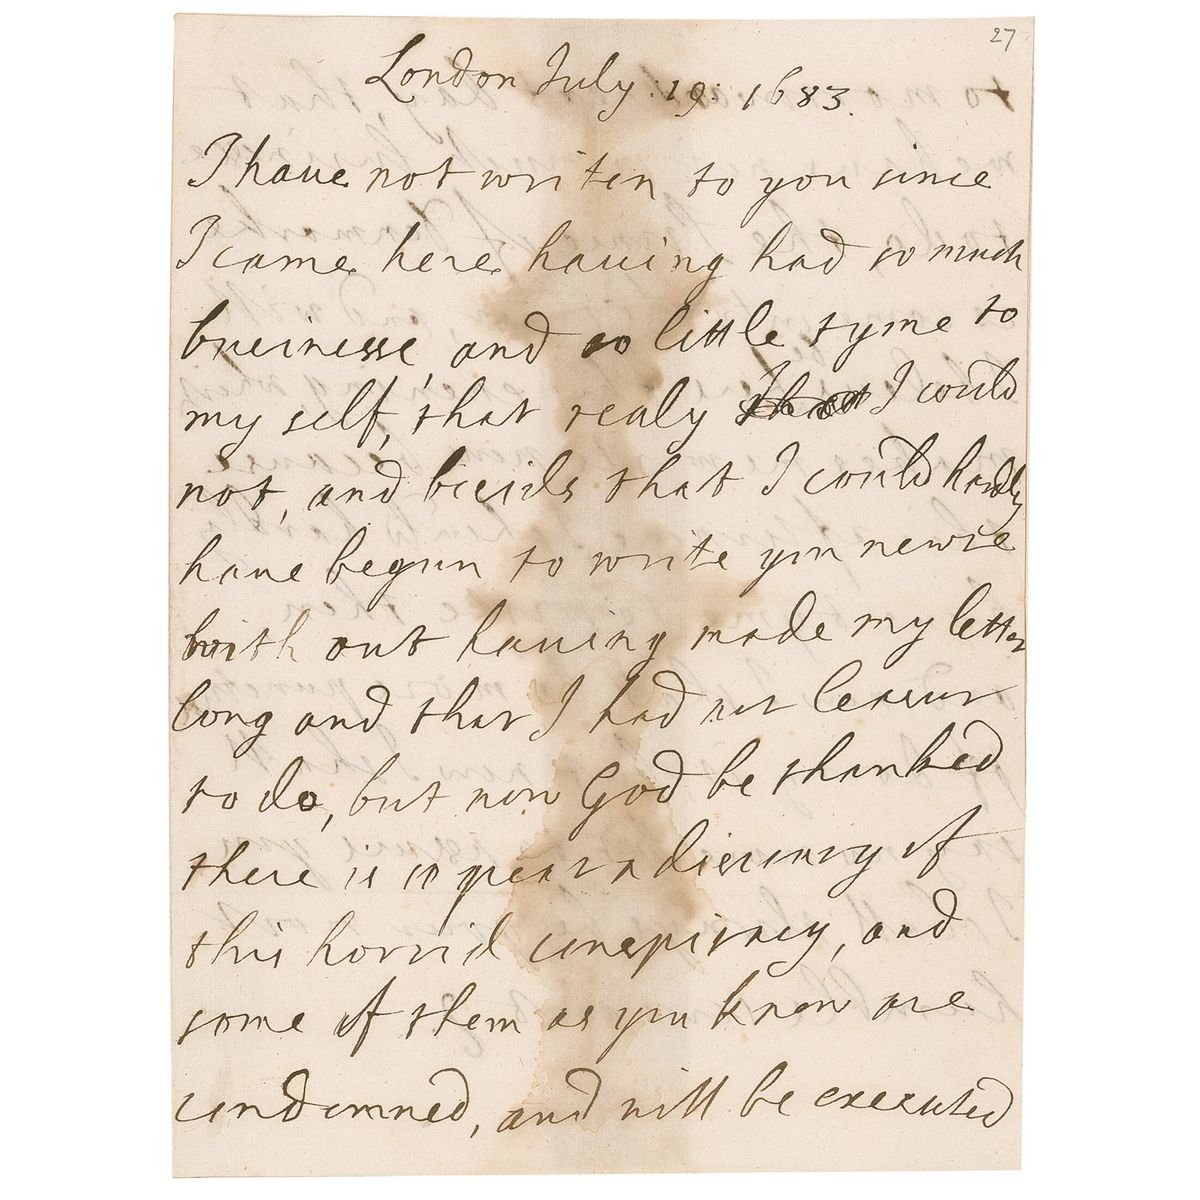 27
London July. 19. 1683.
I haue not writen to you since
I came here hauing had so much
businesse, and so little tyme to
my self, that realy that I could
not, and besids that I could hardly
haue begun to write you newse
with out hauing made my letter
long and that I had not leasur
to do, but now God be thanked
there is apear a discuuery of
this horrid conspiracy, and
some of them as you know are
condemned, and will be executed